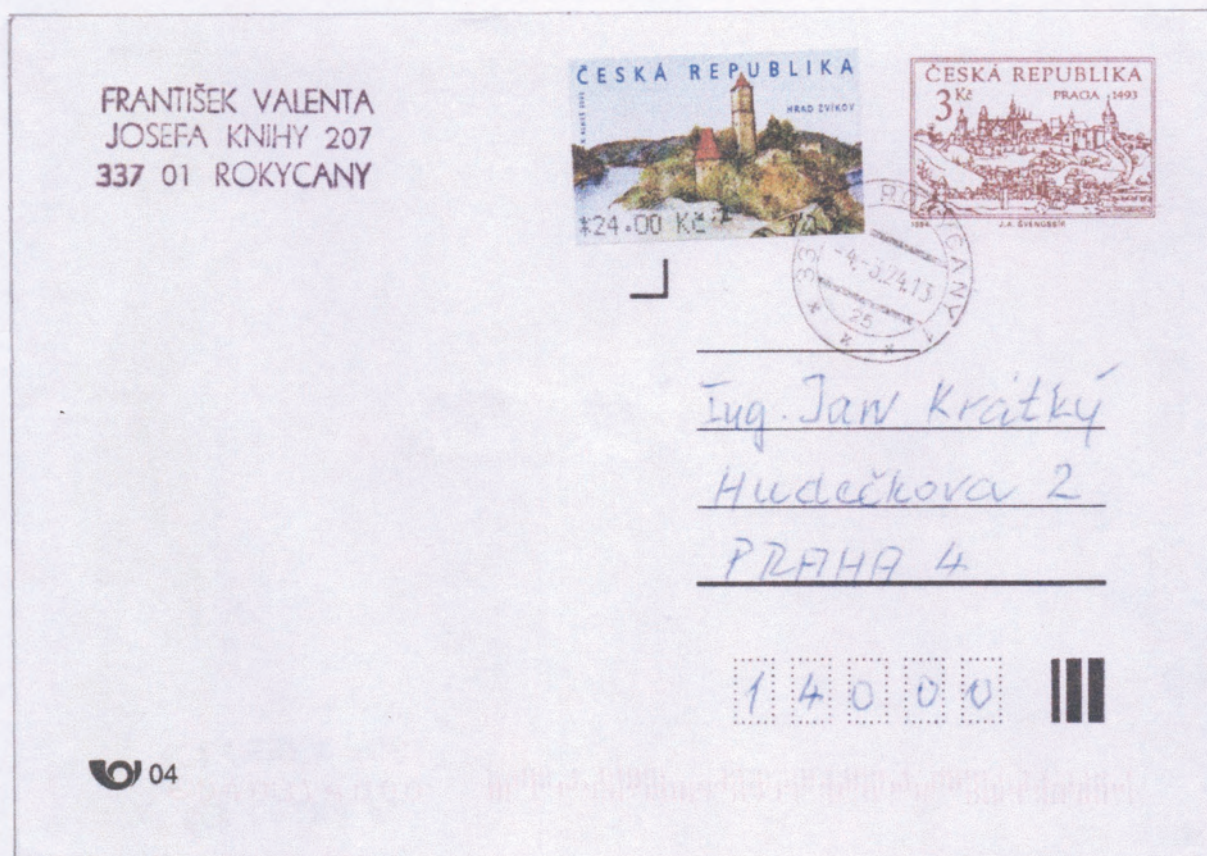 FRANTIŠEK VALENTA
JOSEFA KNIHY 207
337 01 ROKYCANY
ČESKÁ REPUBLIKA
HRAD ZVÍKOV
*24.00 Kč
ČESKÁ REPUBLIKA
3 Kč PRAGA 1493
1994 J.A. ŠVENGSBÍR
ROKYCANY 1
-4.-3.24.13
25
Ing. Jan Krátký
Hudečkova 2
PRAHA 4
14000
04